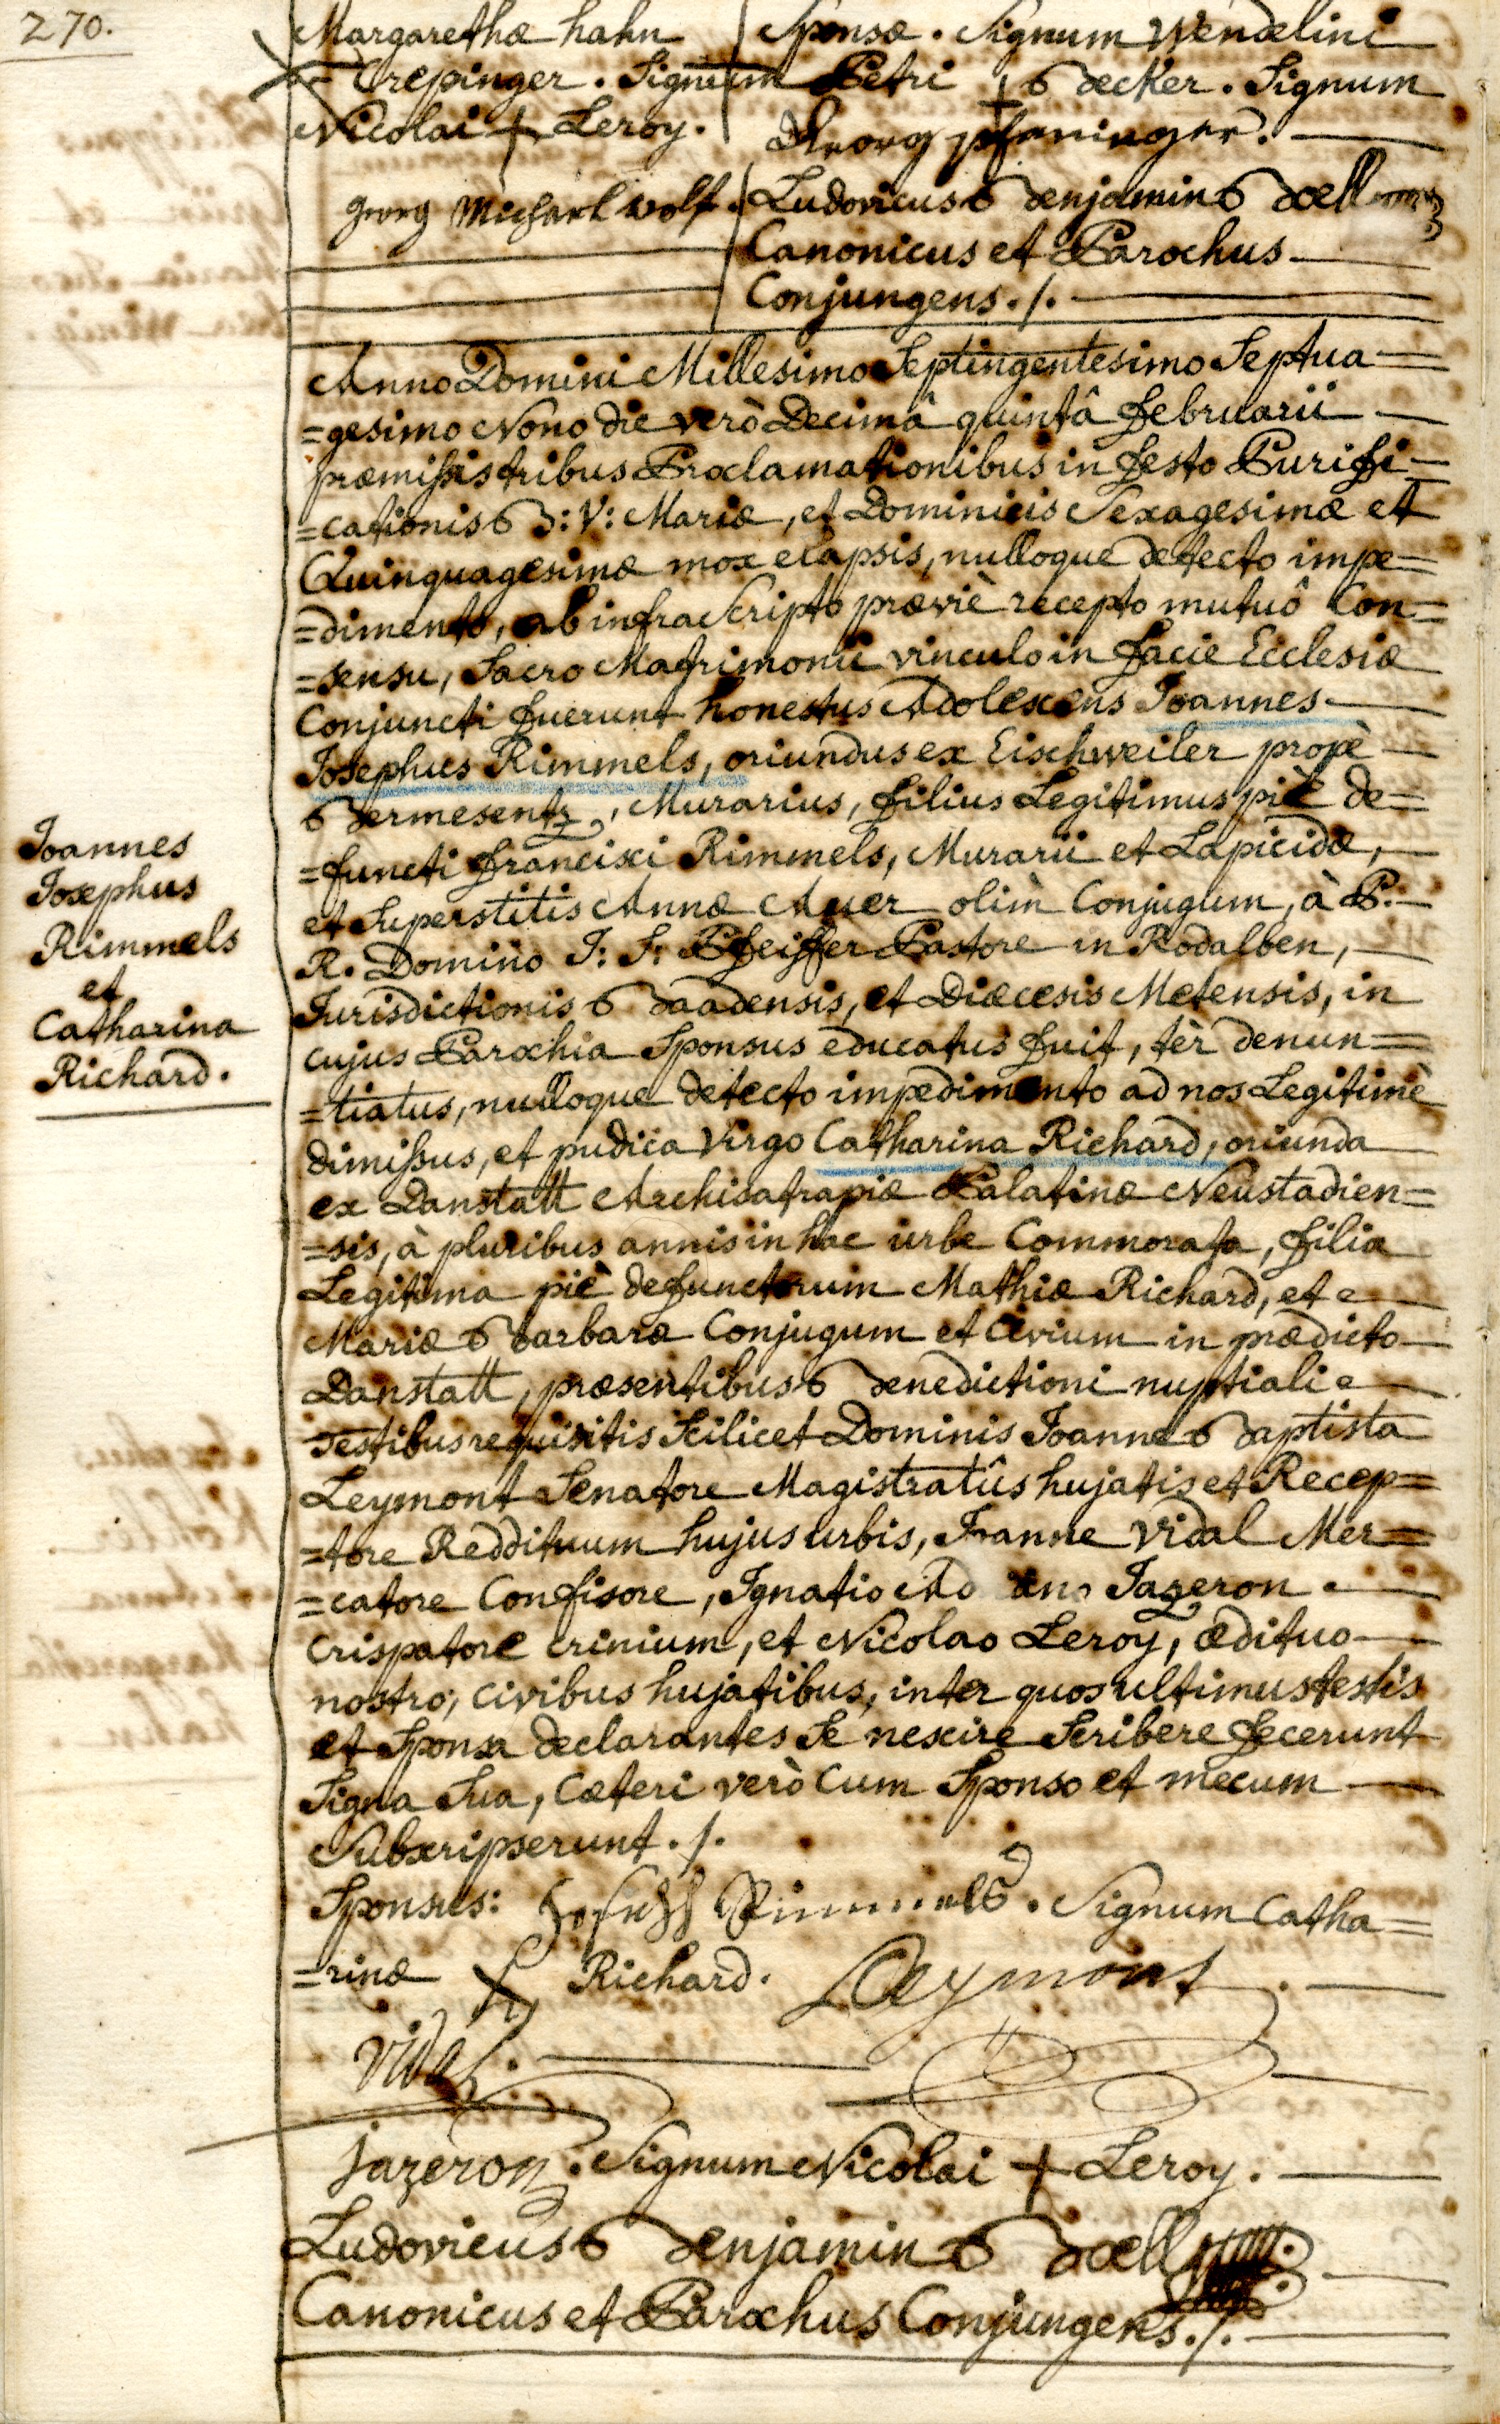 270.
Margarethæ hahn Sponsæ. Signum Wendelini
= Trepinger. Signum Petri + Becker. Signum
Nicolai + Leroy. Georg pfeninger.
Georg Michael Wolf. Ludovicus Benjamin Boell
Canonicus et Parochus
Conjungens ./.
Anno Domini Millesimo Septingentesimo Septua=
=gesimo Nono die verò Decimâ quintâ februarii
præmissis tribus Proclamationibus in festo Purifi=
=cationis B: V: Mariæ, et Dominicis Sexagesimæ et
Quinquagesimæ mox elapsis, nulloque detecto impe=
=dimento, ab infraScripto præviè recepto mutuô Con=
=sensu, Sacro Matrimonii vinculo in facie Ecclesiæ
Conjuncti fuerunt honestus Adolescens Joannes
Josephus Rimmels, oriundus ex Eischweiler propè
Bermesentz, Murarius, filius Legitimus piè de=
=functi francisci Rimmels, Murarii et Lapicidæ,
et Superstitis Annæ Auer olim Conjugum, à P.
R. Domino J: S: Pfeiffer Pastore in Rodalben,
Jurisdictionis Baadensis, et Diæcesis Metensis, in
cujus Parochia Sponsus educatus fuit, tèr denun=
=tiatus, nulloque detecto impedimento ad nos Legitimè
dimissus, et pudica Virgo Catharina Richard, oriunda
ex Danstatt Archisatrapiæ Palatinæ Neustadien=
=sis, à pluribus annis in hac urbe Commorata, filia
Legitima piè defunctorum Mathiæ Richard, et
Mariæ Barbaræ Conjugum et Civium in prædicto
Danstatt, præsentibus Benedictioni nuptiali
testibus requisitis Scilicet Dominis Joanne Baptista
Leymont Senatore Magistratûs hujatis et Recep=
=tore Reddituum hujus urbis, Joanne Vidal Mer=
=catore Confisore, Ignatio Jazeron
Crispatore crinium, et Nicolao Leroy, ædituo
nostro, civibus hujatibus, inter quos ultimus testis
et Sponsa declarantes Se nescire Scribere fecerunt
Signa Sua, Cæteri verò Cum Sponso et mecum
Subscripserunt ./.
Sponsus: Joseph Rimmels. Signum Catha=
=rinæ + Richard. Leymont.
Vidal.
jazeron. Signum Nicolai + Leroy.
Ludovicus Benjamin Boell
Canonicus et Parochus Conjungens ./.
Joannes
Josephus
Rimmels
et
Catharina
Richard.